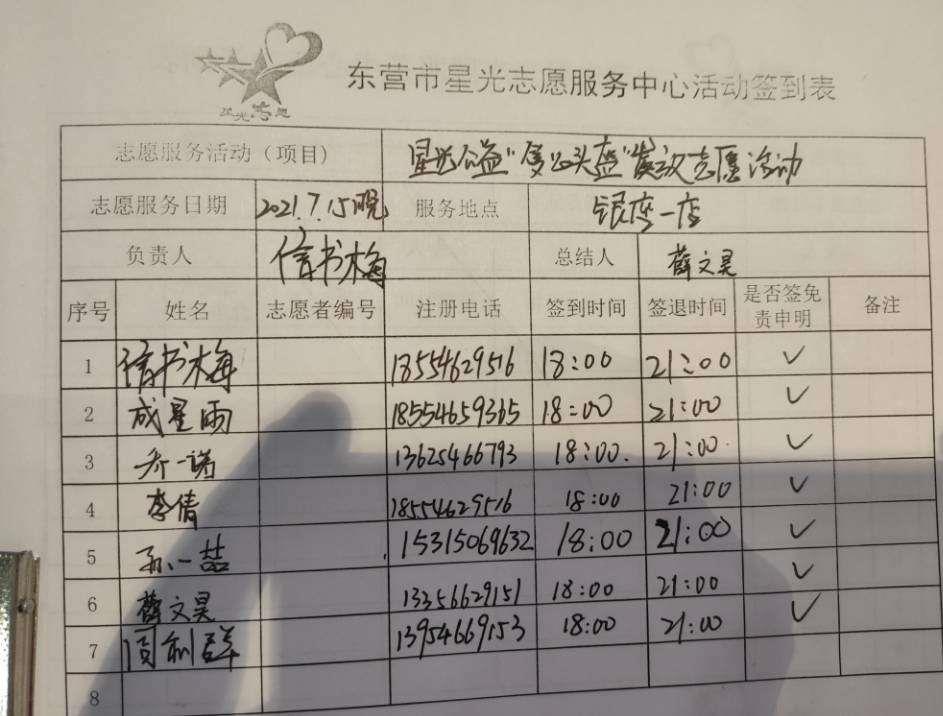 星光志愿
东营市星光志愿服务中心活动签到表
志愿服务活动（项目） 星光公益"爱心头盔"发放志愿活动
志愿服务日期 2021.7.15晚 服务地点 银座一店
负责人 信书梅 总结人 薛文昊
序号 姓名 志愿者编号 注册电话 签到时间 签退时间 是否签免责申明 备注
1 信书梅 18554629516 18:00 21:00 ✓
2 成星雨 18554659365 18:00 21:00 ✓
3 乔一诺 13625466793 18:00. 21:00 ✓
4 李倩 18554629516 18:00 21:00 ✓
5 孙一喆 15315069632 18:00 21:00 ✓
6 薛文昊 13356629151 18:00 21:00 ✓
7 利群 13954669153 18:00 21:00 ✓
8